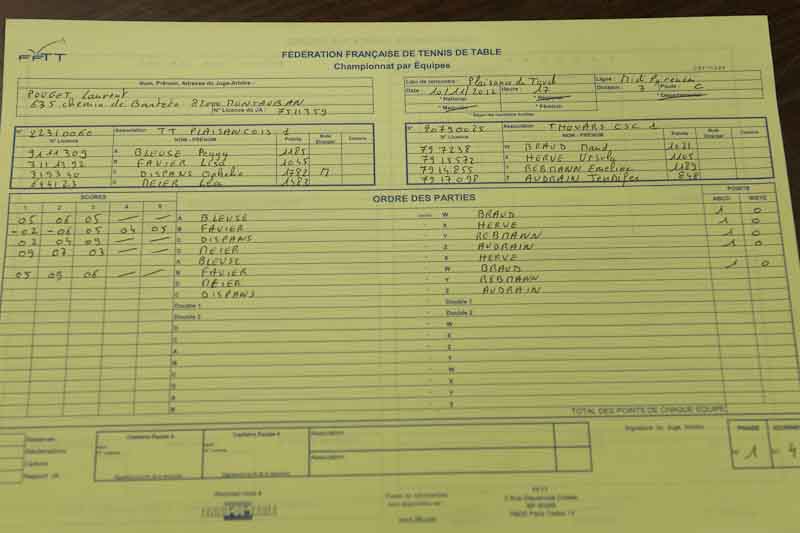 FFTT
FÉDÉRATION FRANÇAISE DE TENNIS DE TABLE
Championnat par Équipes
Nom, Prénom, Adresse du Juge-Arbitre :
POUGET, Laurent
675 chemin de 82000 MONTAUBAN
N° Licence du JA : 751759
Lieu de rencontre : Plaisance du Touch
Ligue : Midi Pyrénées
Date : 10/11/2012 Heure : 17
Division : 3 Poule : C
* National
* Départemental
* Masculin
* Féminin
* Rayer les mentions inutiles
N° 22310060 Association : TT PLAISANCOIS 1
N° Licence NOM - PRÉNOM Points Muté Etranger Cartons
9111309 A BLEUSE Peggy 1185
3111392 B FAVIER Lisa 1045
319340 C DISPANS Ophélie 1782 M
644123 D MEIER Léa 1483
N° 20790025 Association : THOUARS CSC 1
N° Licence NOM - PRÉNOM Points Muté Etranger Cartons
797238 W BRAUD Maud 1021
7915572 X HERVE Ursula 1105
7914855 Y REBMANN Emeline 1189
7917098 Z AUDRAIN Jennifer 848
SCORES
ORDRE DES PARTIES
POINTS
1 2 3 4 5
ABCD WXYZ
05 06 05 — — A BLEUSE W BRAUD 1 0
-02 -06 05 04 05 B FAVIER X HERVE 1 0
02 04 09 — — C DISPANS Y REBMANN 1 0
09 07 03 — — D MEIER Z AUDRAIN 1 0
A BLEUSE X HERVE
05 09 06 — — B FAVIER W BRAUD 1 0
D MEIER Y REBMANN
C DISPANS Z AUDRAIN
Double 1 Double 1
Double 2 Double 2
TOTAL DES POINTS DE CHAQUE ÉQUIPE
Réserves
Réclamations
Cartons
Rapport JA
Capitaine Équipe A
Capitaine Équipe X
Association
Association
Signature du Juge Arbitre
PHASE
JOURNÉE
N° 1
N° 4
FFTT